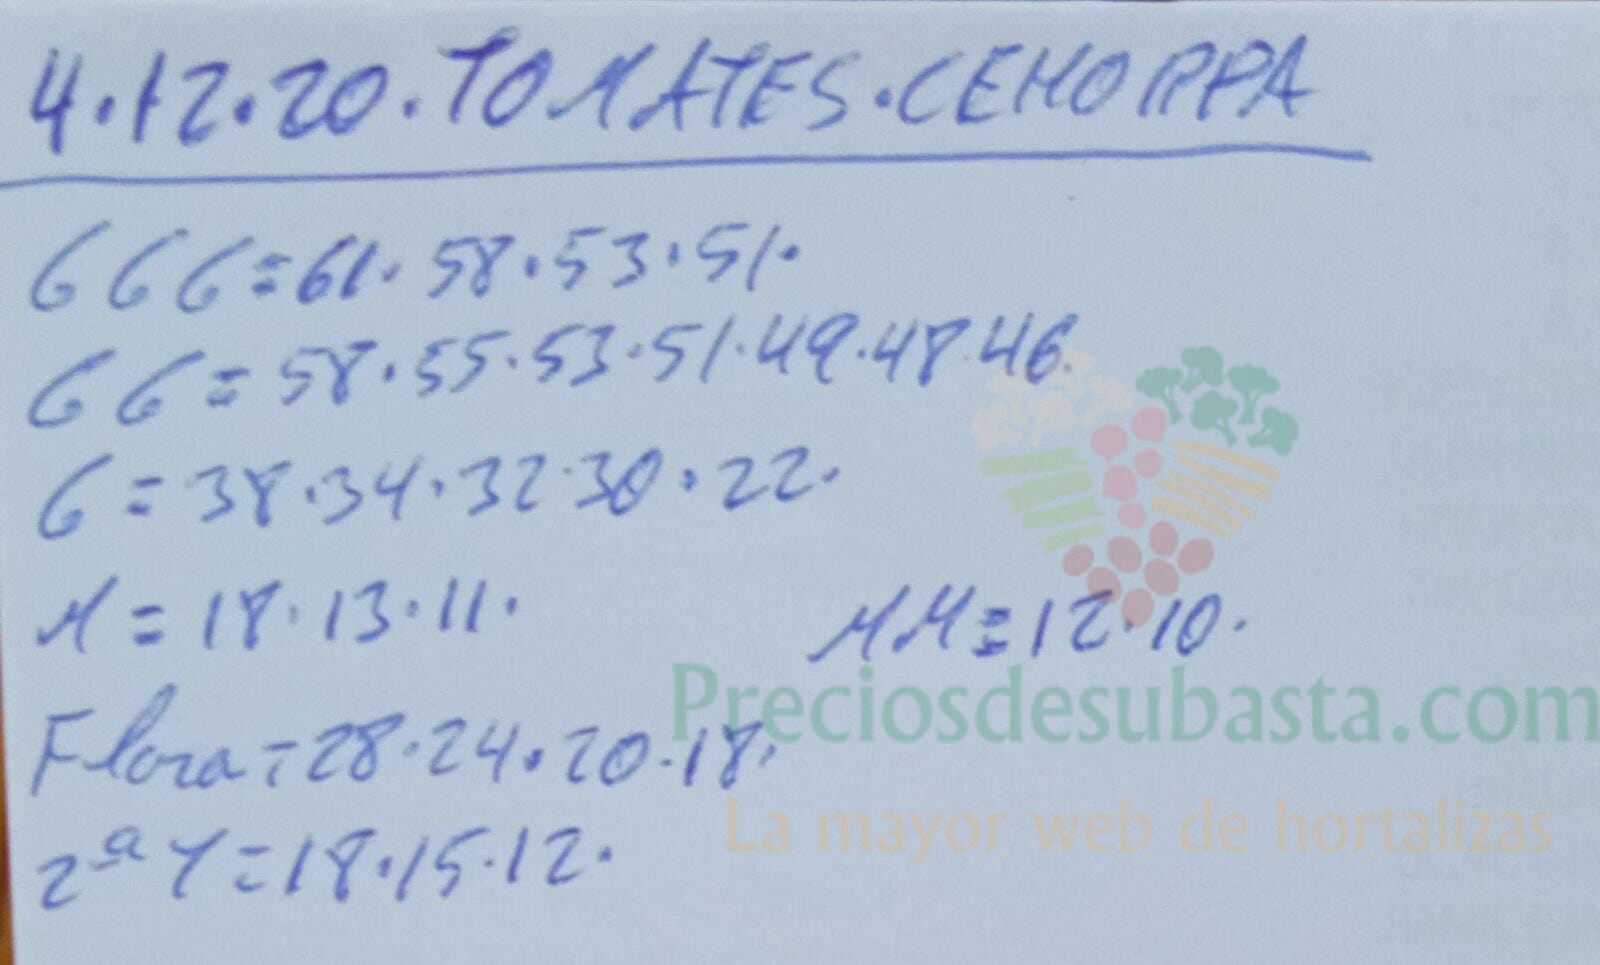 4.12.20.TOMATES.CEHORPA
GGG=61.58.53.51.
GG=58.55.53.51.49.48.46.
G=38.34.32.30.22.
M=18.13.11. MM=12.10.
Preciosdesubasta.com
Flora=28.24.20.18.
La mayor web de hortalizas
2ªY=18.15.12.